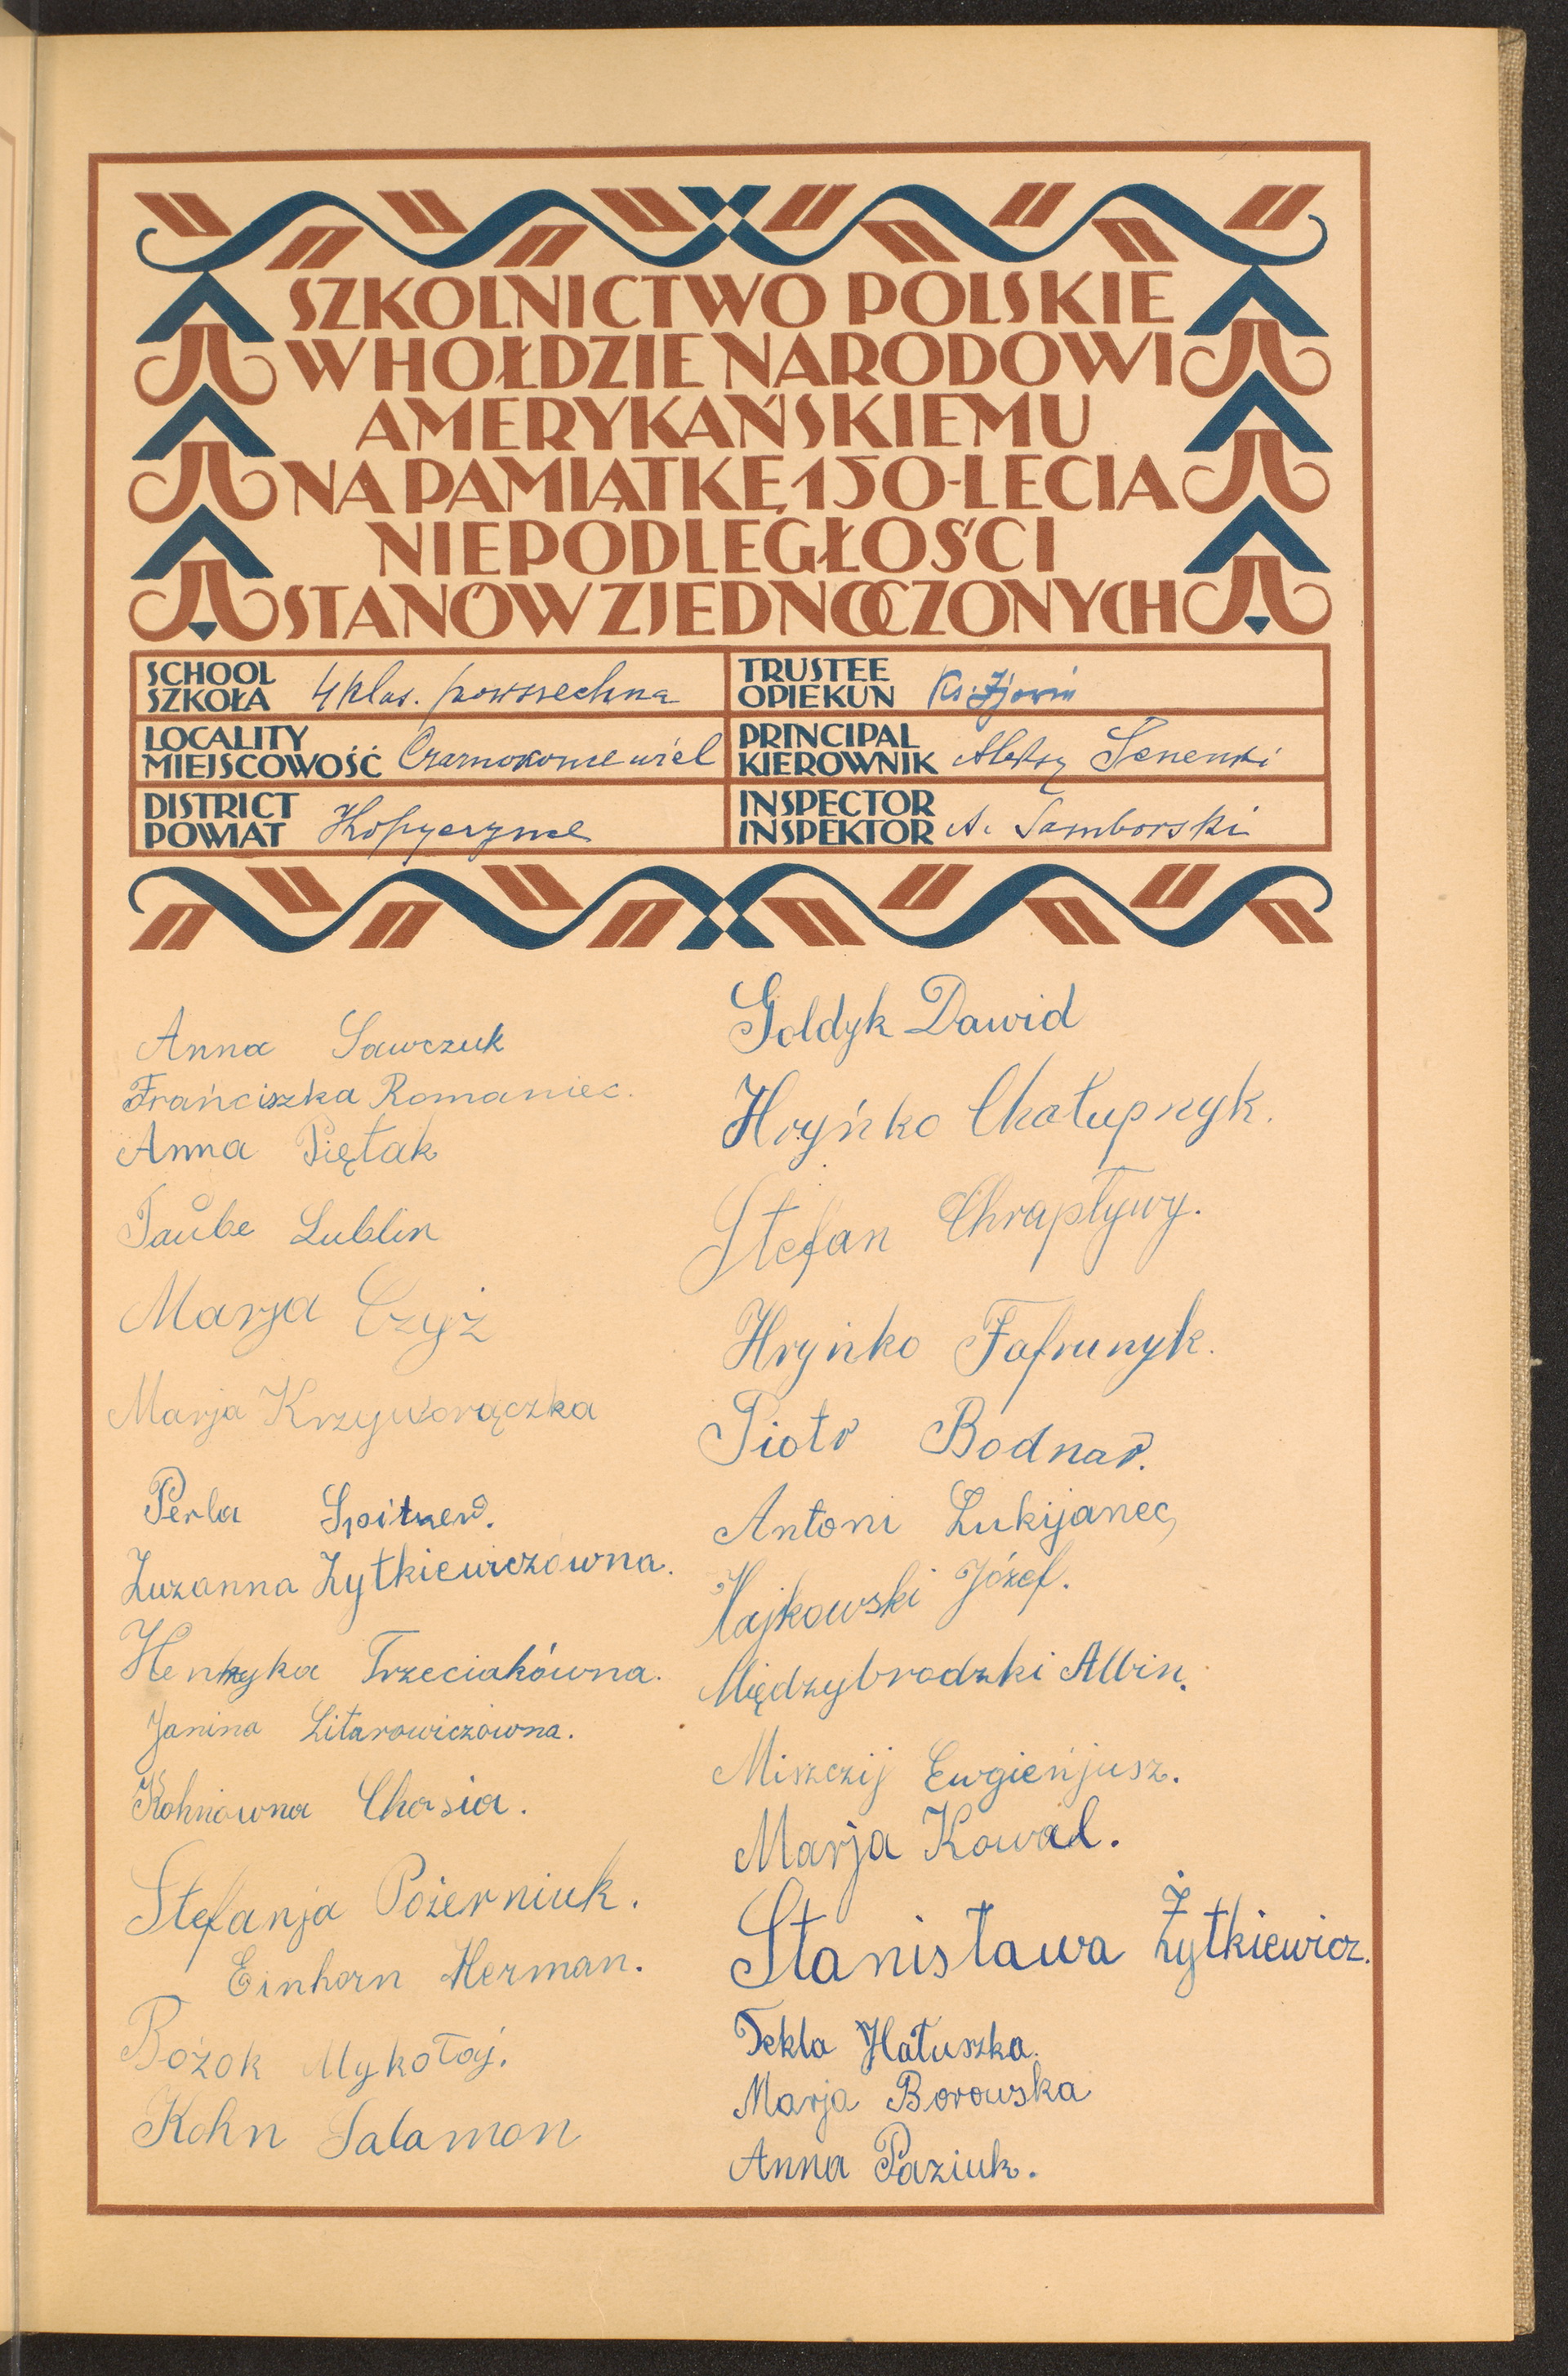 SZKOLNICTWO POLSKIE
W HOŁDZIE NARODOWI
AMERYKAŃSKIEMU
NA PAMIĄTKĘ 150-LECIA
NIEPODLEGŁOŚCI
STANÓW ZJEDNOCZONYCH
SCHOOL
SZKOŁA 4 klas. powszechna
TRUSTEE
OPIEKUN Ks.
LOCALITY
MIEJSCOWOŚĆ Czarnokońce wiel
PRINCIPAL
KIEROWNIK Aleksy
DISTRICT
POWIAT Kopyczyńce
INSPECTOR
INSPEKTOR A. Samborski
Anna Sawczuk
Frańciszka Romaniec.
Anna Piętak
Taube Lublin
Marja Czyż
Marja Krzyworączka
Perla Spitzer.
Zuzanna Żytkiewiczowna.
Henryka Trzeciakówna.
Janina Litarowiczowna.
Kohnówna Chasia.
Stefanja Pożerniuk.
Einhorn Herman.
Bożok Mykołaj.
Kohn Salamon
Goldyk Dawid
Hryńko Chałupnyk.
Stefan Chrapływy.
Hryńko Fafrunyk.
Piotr Bodnar.
Antoni Łukijanec,
Hajkowski Józef.
Międzybrodzki Albin.
Miszczij Ewgieńjusz.
Marja Kowal.
Stanisława Żytkiewicz.
Tekla Hałuszka.
Marja Borowska
Anna Paziuk.